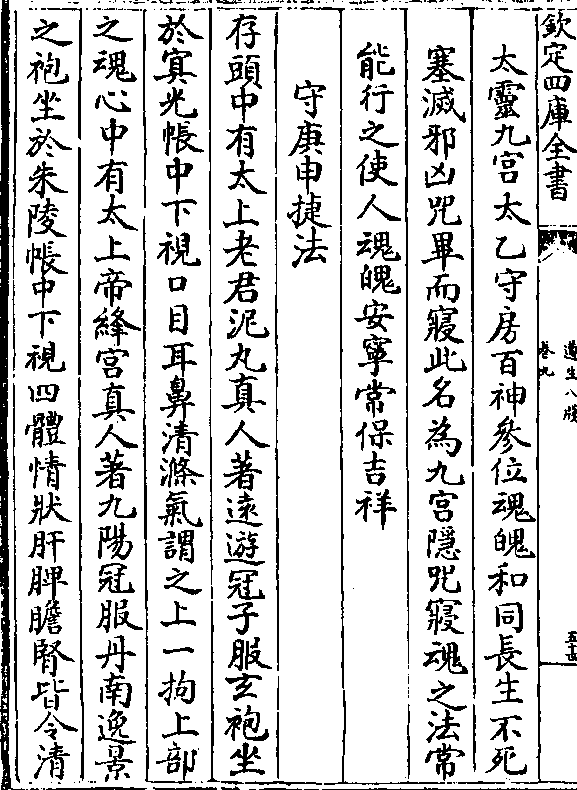 欽定四庫全書
遵生八牋
卷九
五十四
太靈九宮太乙守房百神參位魂魄和同長生不死
塞滅邪凶咒畢而寢此名為九宮隱咒寢魂之法常
能行之使人魂魄安寧常保吉祥
守庚申捷法
存頭中有太上老君泥丸真人著遠遊冠子服玄袍坐
於寘光帳中下視口目耳鼻清滌氣謂之上一拘上部
之魂心中有太上帝絳宮真人著九陽冠服丹南逸景
之袍坐於朱陵帳中下視四體情狀肝脾膽腎皆令清